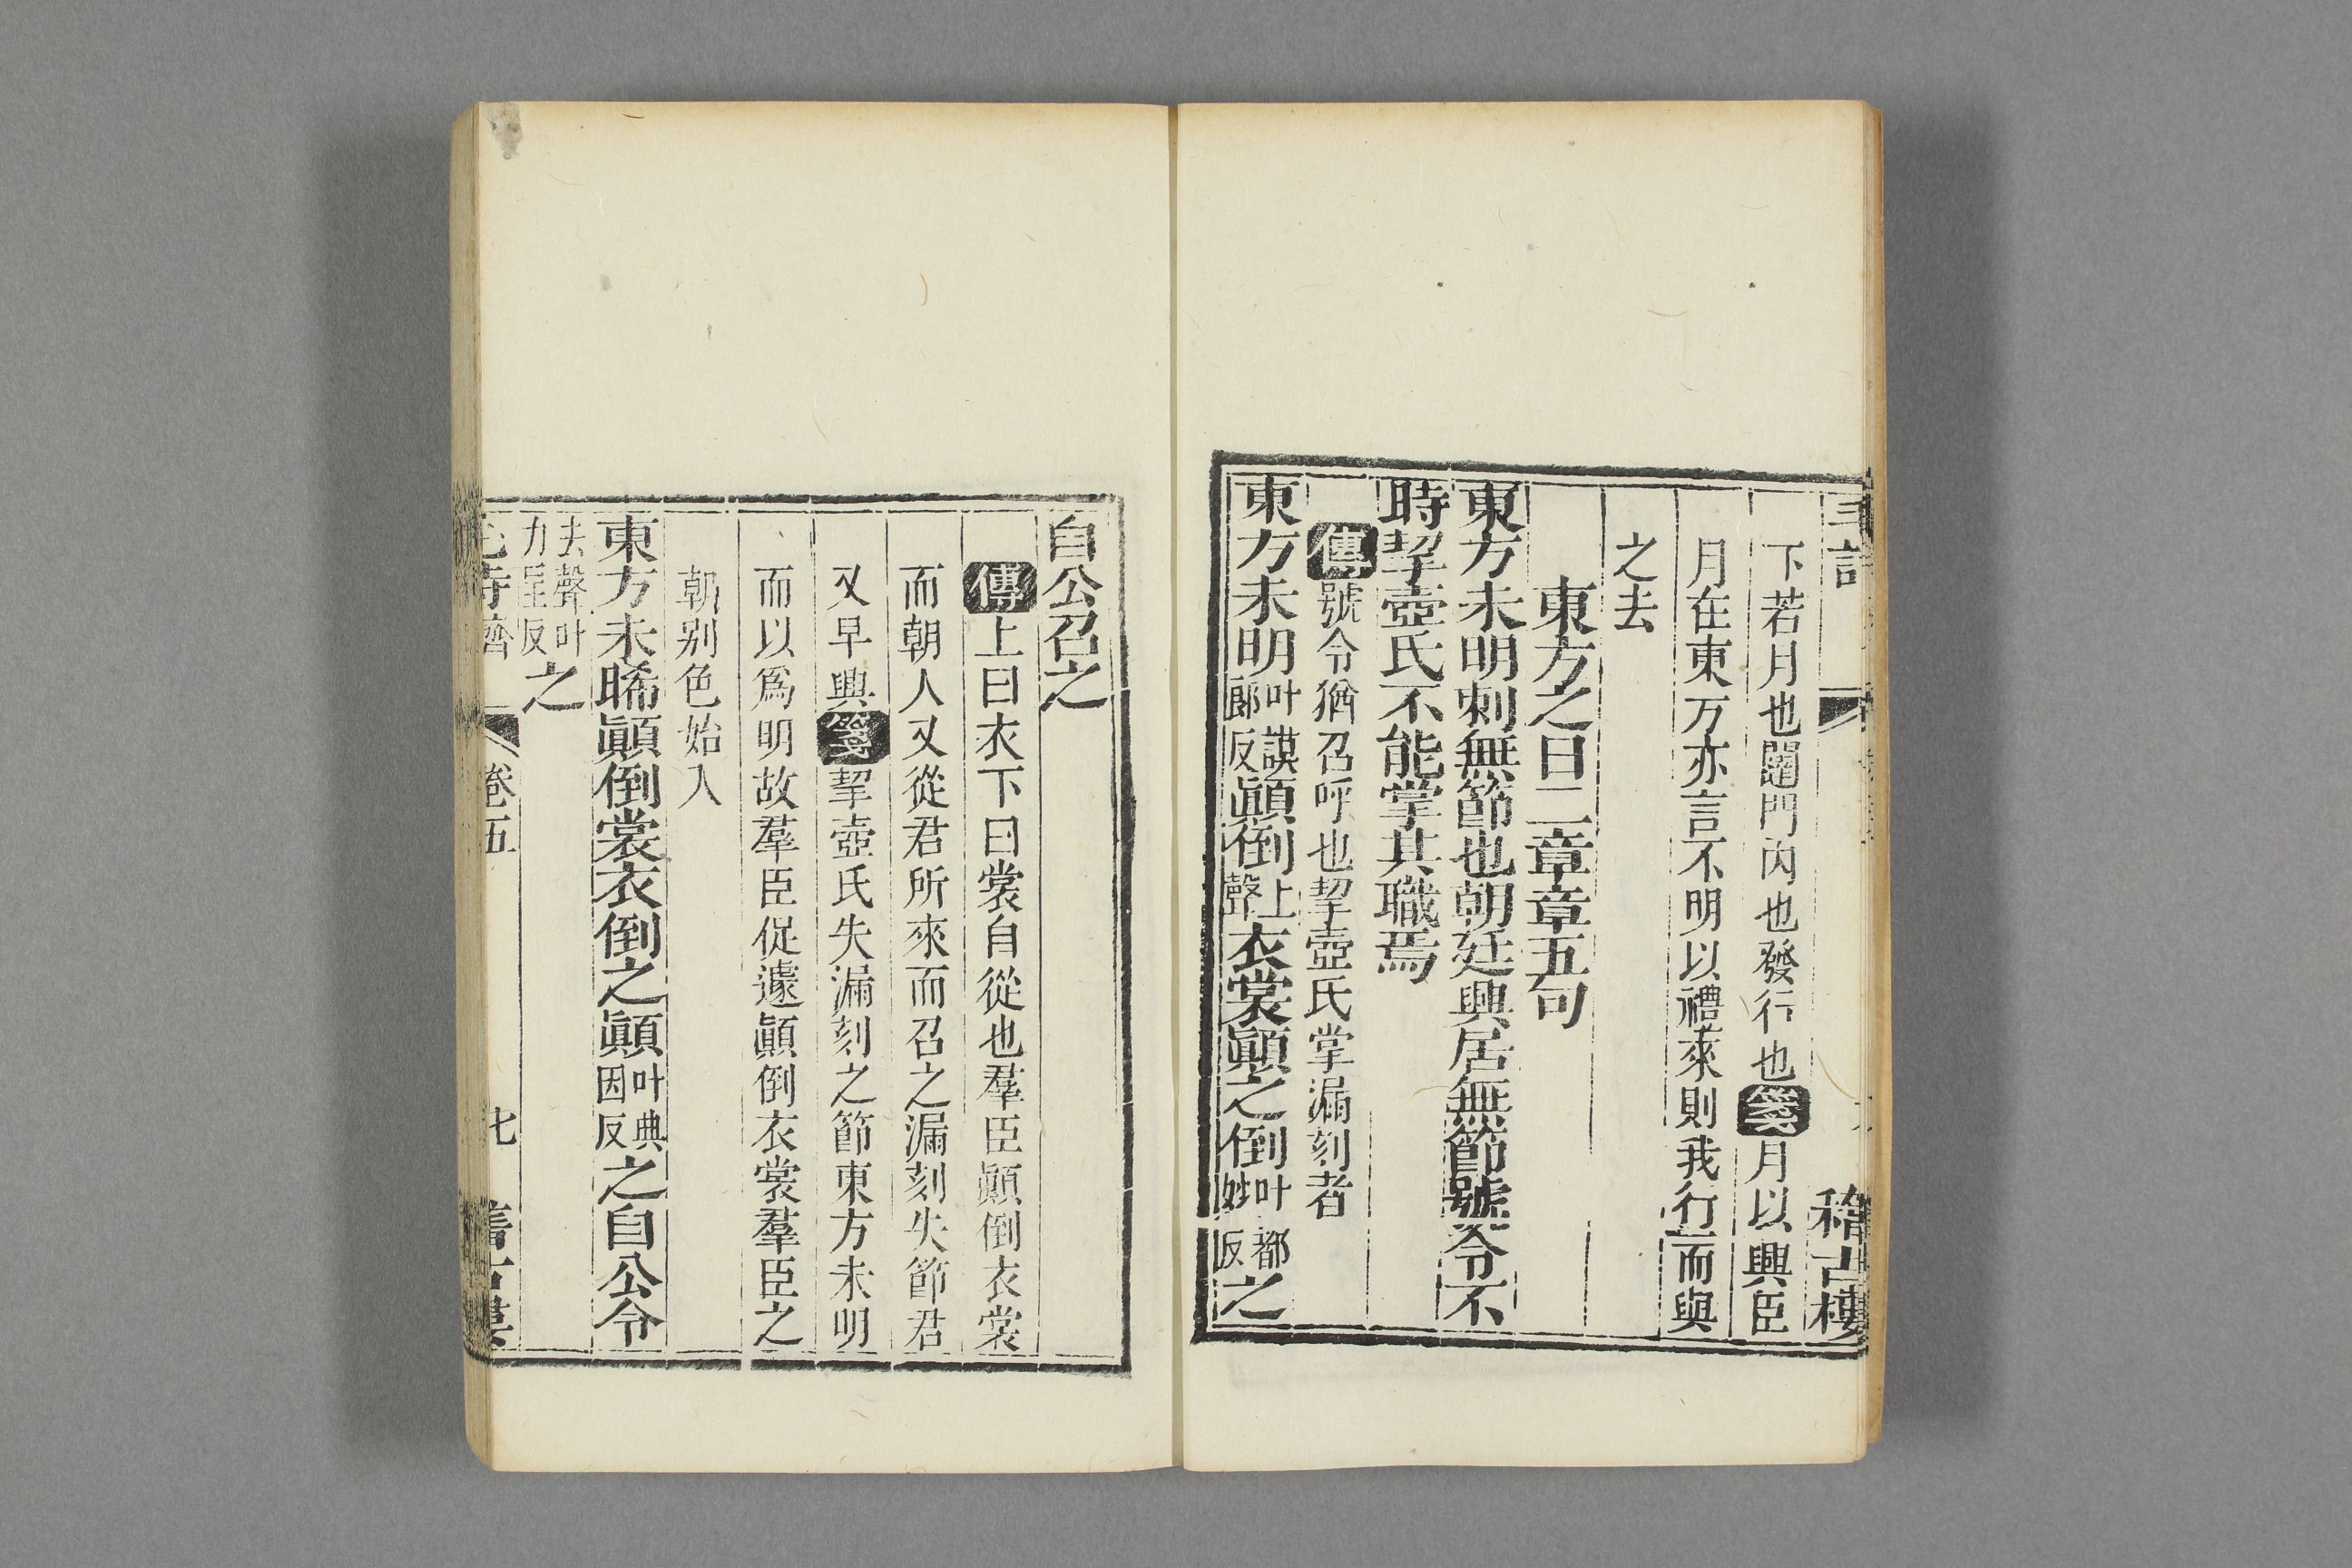 稽古樓
下若月也闥門內也發行也箋月以興臣
月在東方亦言不明以禮來則我行而與
之去
東方之日二章章五句
東方未明刺無節也朝廷興居無節號令不
時挈壺氏不能掌其職焉
傳號令猶召呼也挈壺氏掌漏刻者
東方未明叶謨郎反顚倒上聲衣裳顚之倒叶都妙反之
自公召之
傳上曰衣下曰裳自從也羣臣顚倒衣裳
而朝人又從君所來而召之漏刻失節君
又早興箋挈壺氏失漏刻之節東方未明
而以爲明故羣臣促遽顚倒衣裳羣臣之
朝別色始入
東方未晞顚倒裳衣倒之顚叶典因反之自公令
去聲叶力呈反之
卷五 七